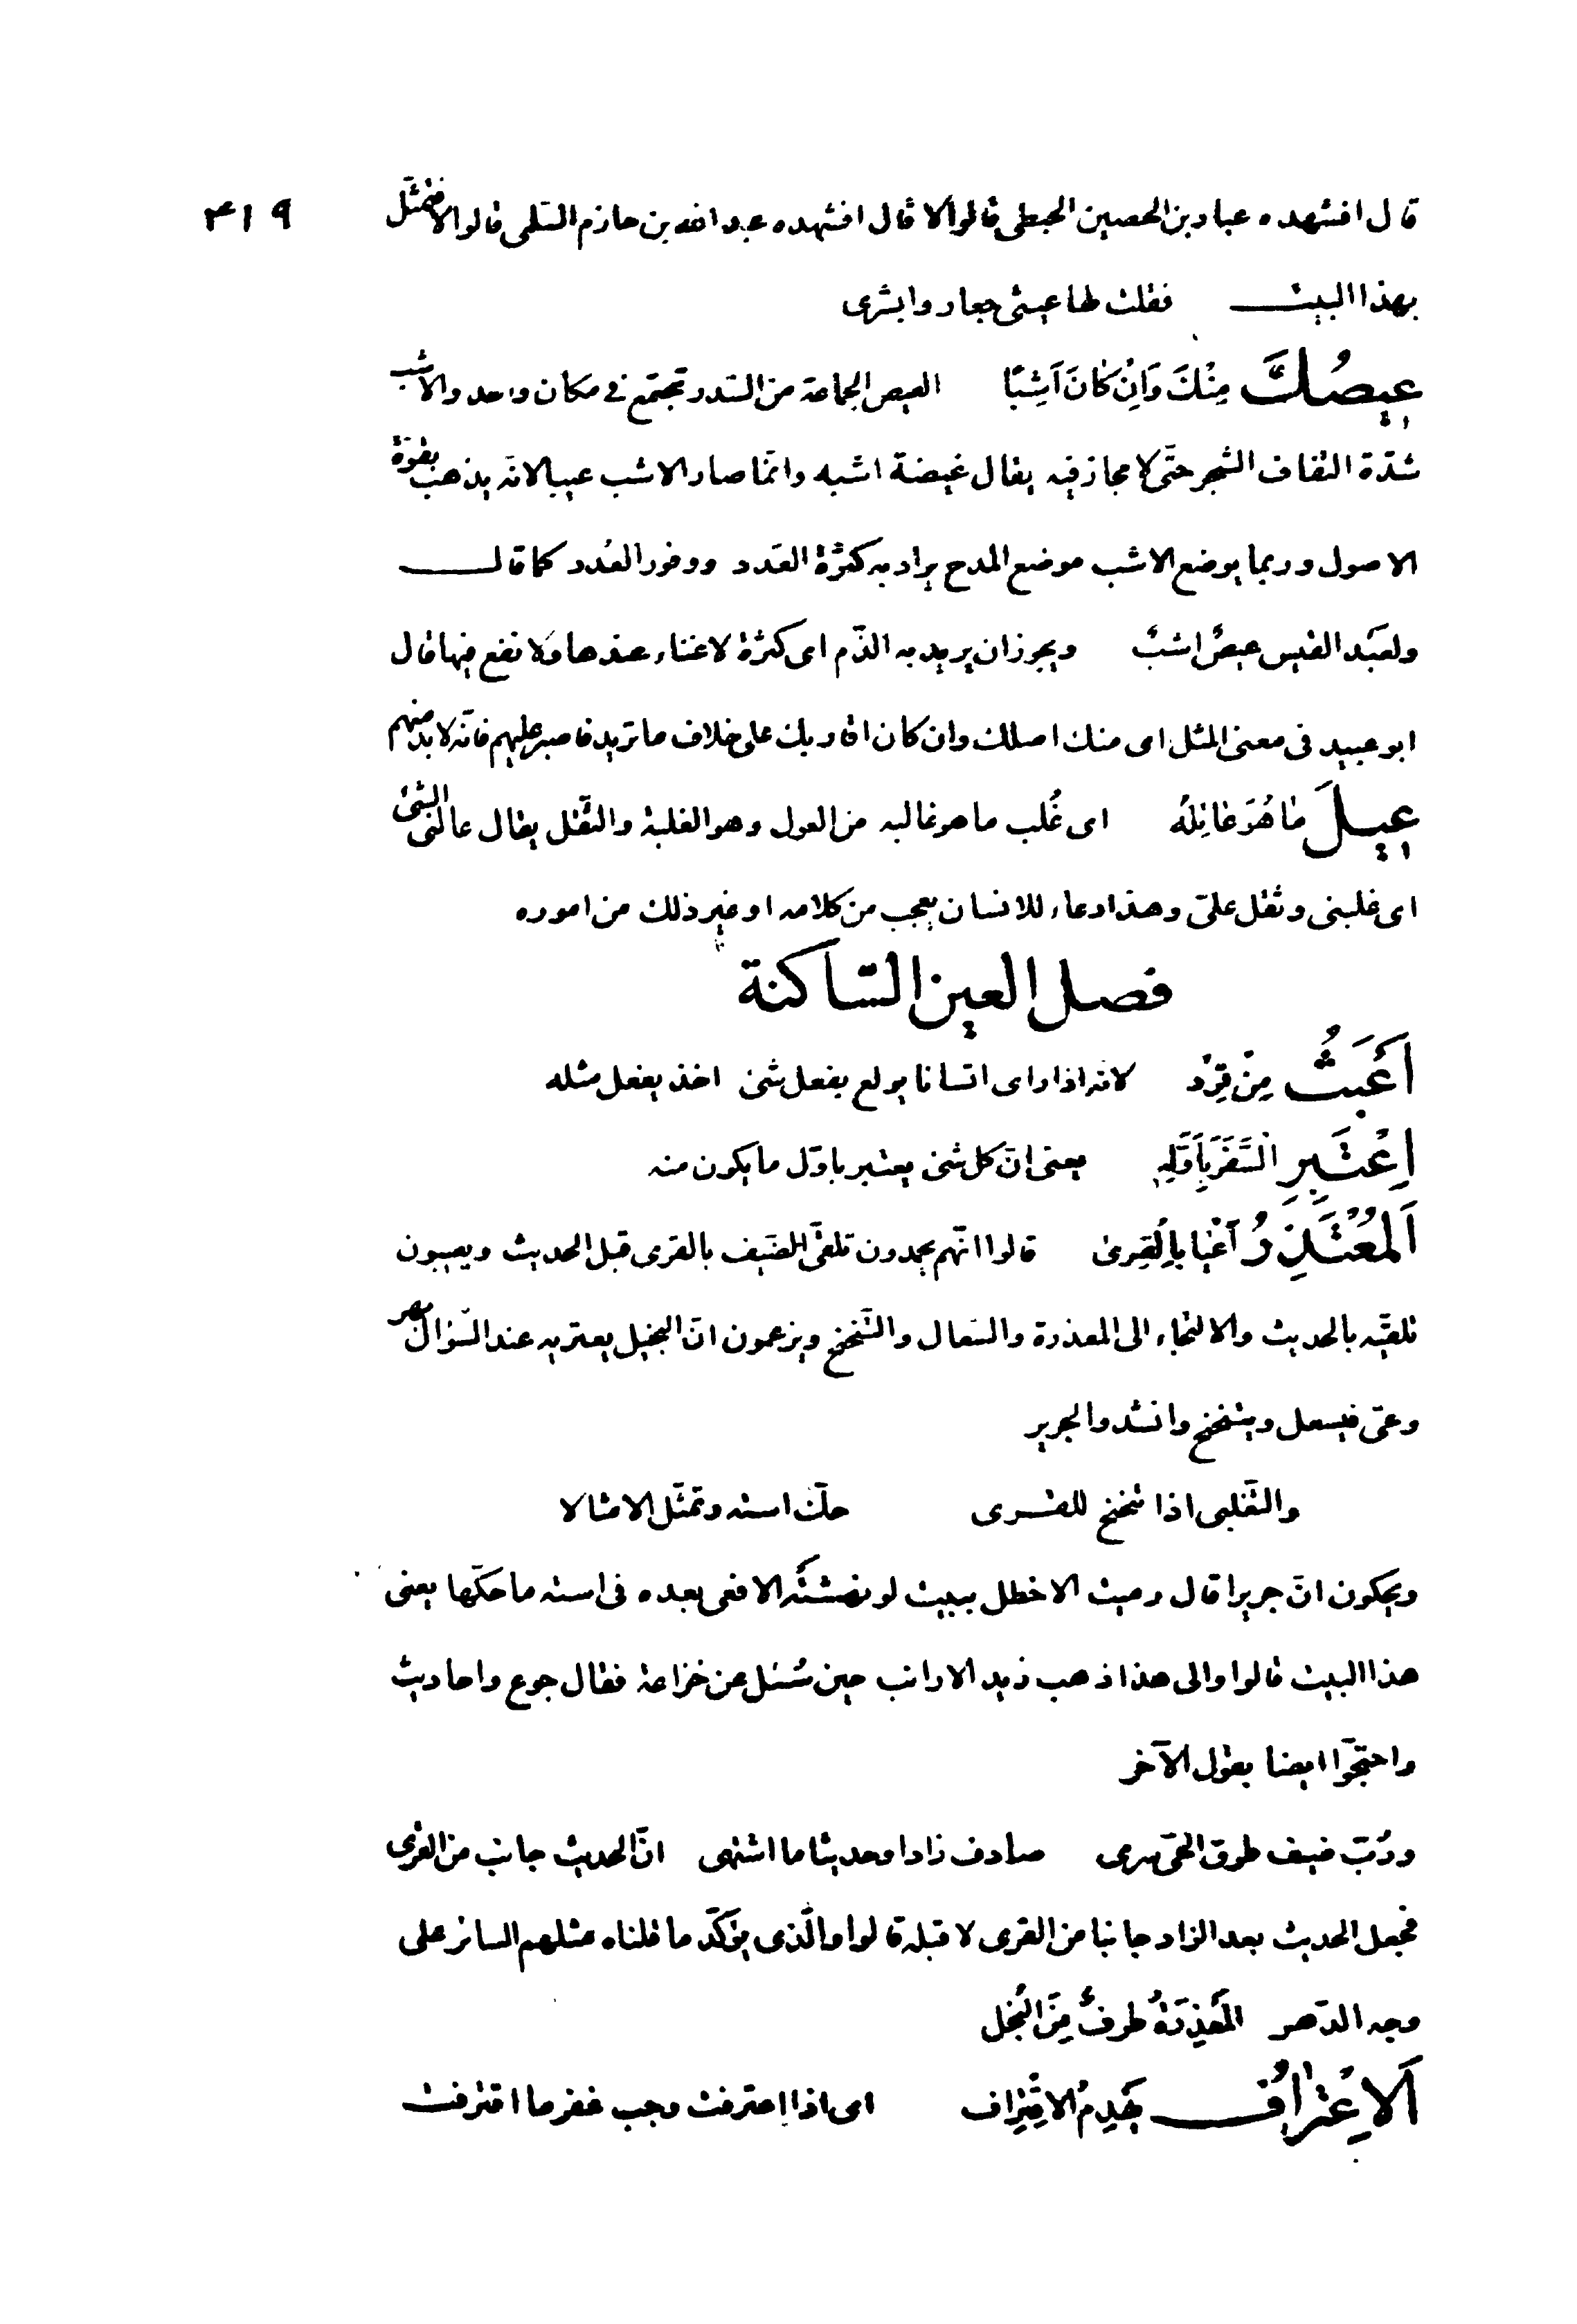 قال افشهده عباد بن الحصين الحبطى قالوا لا قال افشهده عبد الله بن حازم السّلمى قالوا لا فتمثّل
٤١٩
بهذا البيت فقلت لها عيثى جعار وابشرى
عِيصُكَ مِنْكَ وَاِنْ كانَ اَشِبًا العيص الجماعة من السّدر تجتمع فى مكان واحد والاشب
شدّة التفاف الشجر حتّى لا مجاز فيه يقال غيضة اشبه وانّما صار الاشب عيبا لانّه يذهب بقوّة
الاصول وربما يوضع الاشب موضع المدح يراد به كثرة العَدد ووفور العُدد كما قال
ولعَبد القيس عيصٌ اشبٌ ويجوز ان يريد به الذّم اى كثرة لا غناء عندها ولا نفع فيها قال
ابو عبيد فى معنى المثل اى منك اصلك وان كان اقاربك على خلاف ما تريد فاصبر عليهم فانّه لا بد منهم
عِيلَ ما هُوَ عائِلُهُ اى غُلب ما هو غالبه من العول وهو الغلبة والثّقل يقال عالنى الشئ
اى غلبنى وثقل علىّ وهذا دعاء للانسان يعجب من كلامه او غير ذلك من اموره
فصل العين السّاكنة
اَعْبَثُ مِنْ قِرْد لانّه اذا راى انسانا يولع بفعل شئ اخذ يفعل مثله
اِعْتَبِرِ السَّفَرَ بِاَوَّلِهِ يعنى انّ كل شئ يعتبر باوّل ما يكون منه
اَلْمُعْتَذِرُ اَعْيا بِالْقِرى قالوا انّهم يحمدون تلقّى الضّيف بالقرى قبل الحديث ويعيبون
تلقّيه بالحديث والالتجاء الى المعذرة والسّعال والتّنحنح ويزعمون انّ البخيل يعتريه عند السّؤال بهر
وعىّ فيسعل ويتنحنح وانشدوا لجرير
والتّغلبى اذا تنحنح للقرى حكّ استه وتمثّل الامثالا
ويحكون انّ جريرا قال رميت الاخطل ببيت لو نهشته الافعى بعده فى استه ما حكّها يعنى
هذا البيت قالوا والى هذا ذهب زيد الارانب حين سُئل عن خزاعة فقال جوع واحاديث
واحتجّوا ايضا بقول الآخر
ورُبّ ضيف طرق الحىّ سرى صادف زادا وحديثا ما اشتهى انّ الحديث جانب من القرى
فجعل الحديث بعد الزاد جانبا من القرى لا قبله قالوا والّذى يؤكّد ما قلناه مثلهم السائر على
وجه الدّهر المَعْذِرَةُ طرفٌ مِنَ البُخل
اَلاِعْتِرافُ يَهْدِمُ الاِقْتِراف اى اذا اعترفت وجب غفر ما اقترفت